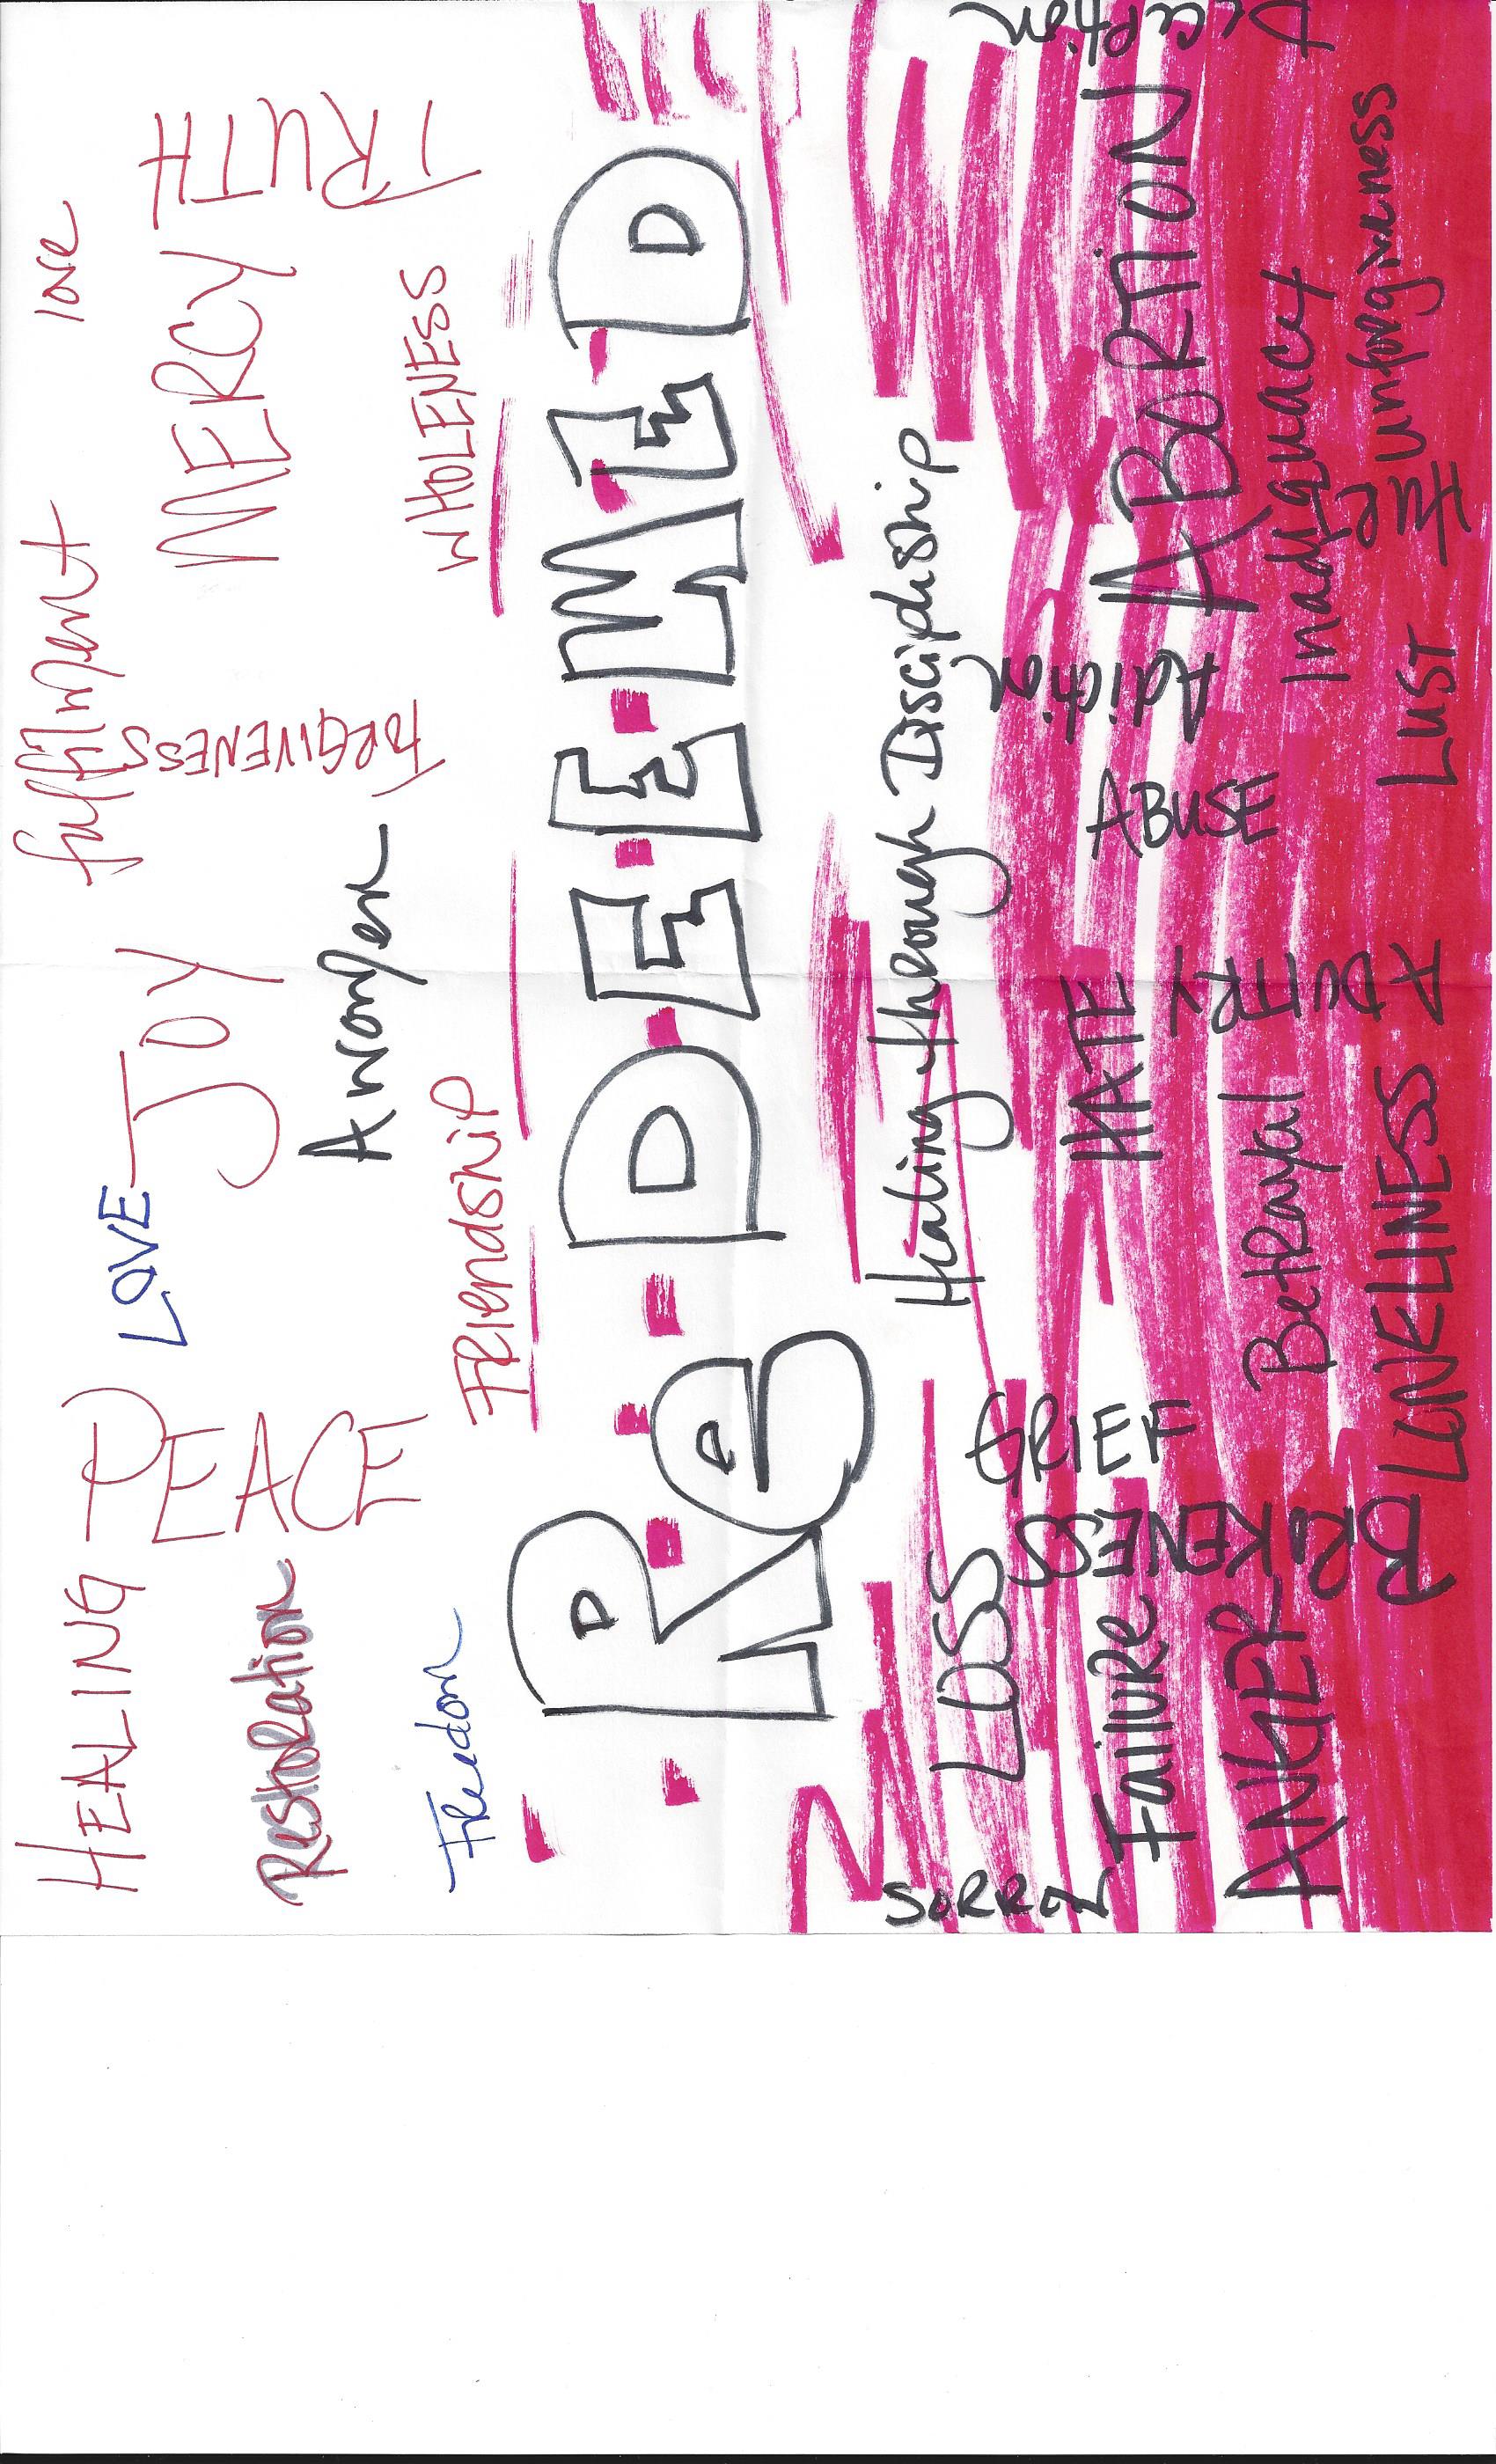 HEALING
fulfilment
love
PEACE
LOVE
JOY
FORGIVENESS
MERCY
TRUTH
Restoration
A women
WHOLENESS
Freedom
Friendship
ReDEEMED
Healing through Discipleship
SORROW
LOSS
GRIEF
Failure
HATE
ABUSE
ABORTION
ANGER
BROKENESS
Betrayal
Inadiquacy
LONELINESS
LUST
unforgiveness